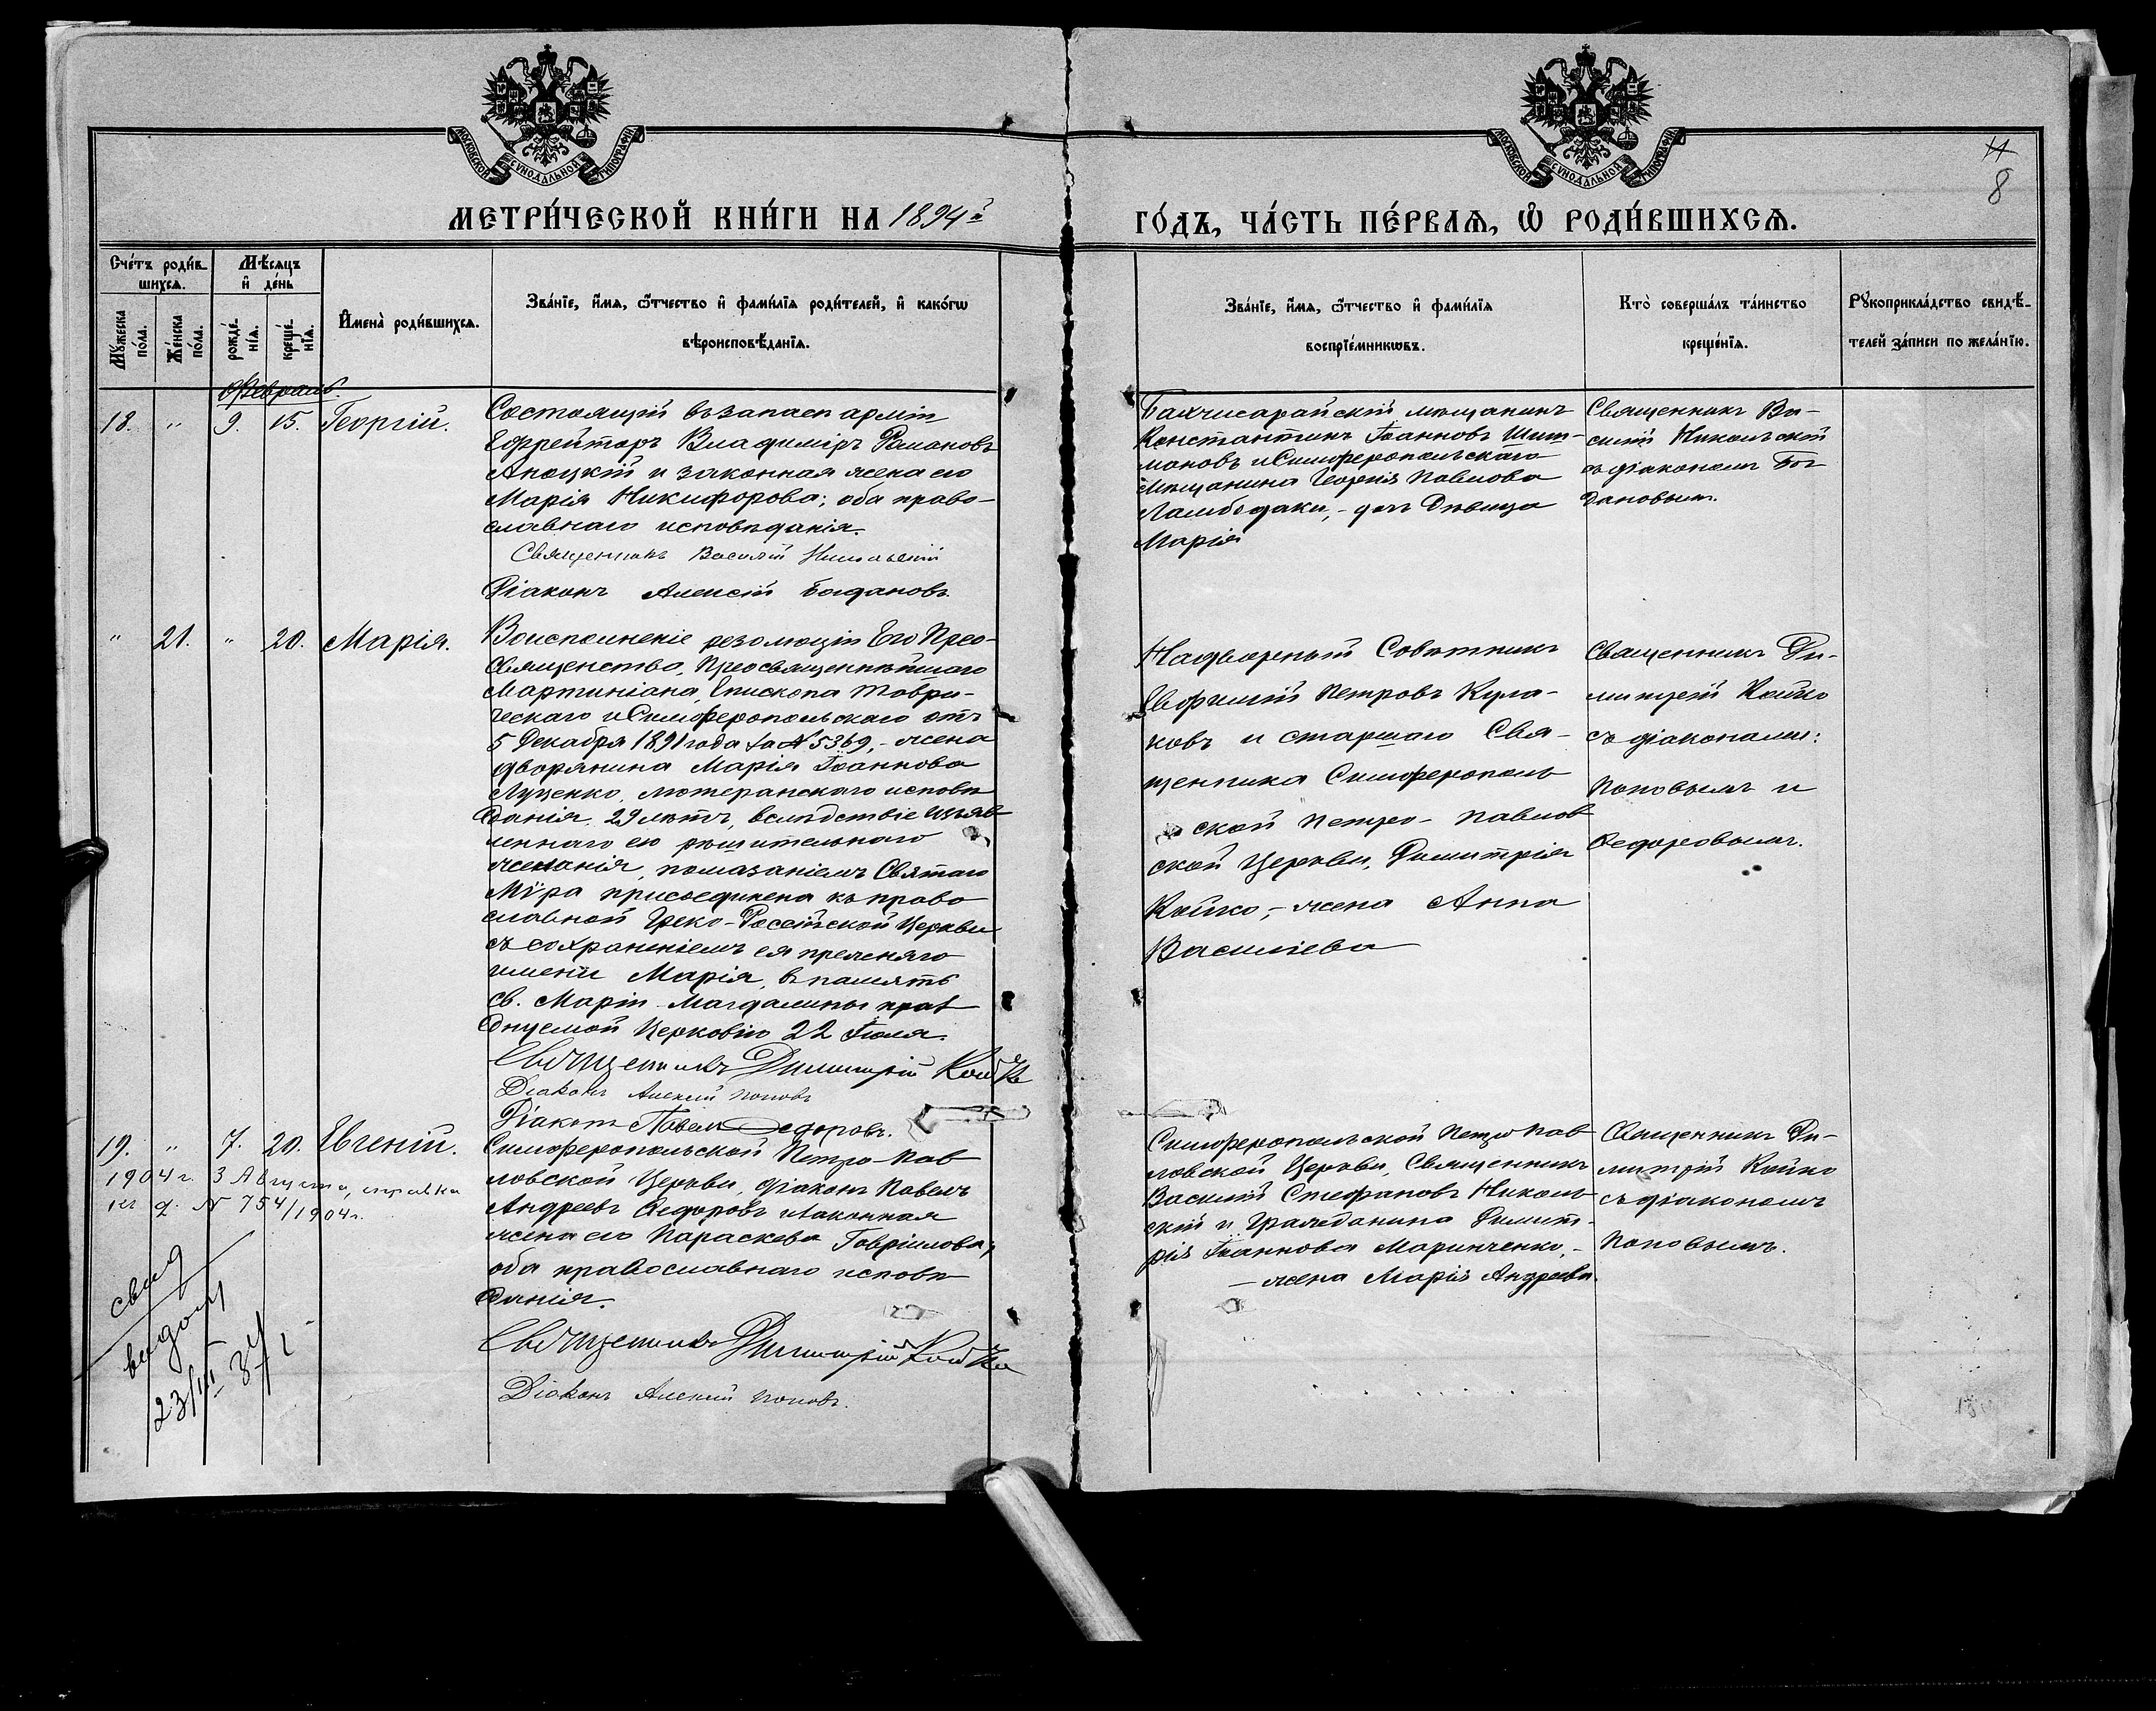 МОСКОВСКОЙ СѴНОДАЛЬНОЙ ТИПОГРАФІИ
МОСКОВСКОЙ СѴНОДАЛЬНОЙ ТИПОГРАФІИ
8
МЕТРИ́ЧЕСКОЙ КНИ́ГИ НА 1894й
ГО́ДЪ, ЧА́СТЬ ПЕ́РВАѦ, Ѡ҆ РОДИ́ВШИХСѦ.
Сче́тъ роди́в-
шихсѧ.
Мѣ́сѧцъ
и҆ де́нь
Мꙋ́жеска по́ла.
Же́нска по́ла.
рожде́-нїѧ.
креще́-нїѧ.
И҆мена̀ роди́вшихсѧ.
Зва́нїе, и҆́мѧ, ѻ҆́тчество и҆ фами́лїѧ роди́телей, и҆ како́гѡ
вѣроисповѣ́данїѧ.
Зва́нїе, и҆́мѧ, ѻ҆́тчество и҆ фами́лїѧ
воспрїе́мникѡвъ.
Кто̀ соверша́лъ та́инство
креще́нїѧ.
Рꙋкоприкла́дство свидѣ́-
телей за́писи по жела́нїю.
Февраль.
18. " 9. 15. Георгій.
Состоящій въ запасѣ арміи
Ефрейторъ Владиміръ Романовъ
и законная жена его
Марія Никифорова; оба право-
славнаго исповѣданія.
Священникъ Василій Никольскій
Діаконъ Алексій Богдановъ
Бахчисарайскій мѣщанинъ
Константинъ Іоанновъ Шиш-
мановъ и Симферопольскаго
Мѣщанина Георгія Павлова
дочь Дѣвица
Марія
Священникъ Ва-
силій Никольскій
съ діакономъ Бог
дановымъ.
" 21. " 20. Марія.
Во исполненіе резолюціи Его Прео-
Священства, Преосвященнѣйшаго
Мартиніана, Епископа Таври-
ческаго и Симферопольскаго отъ
5 Декабря 1891 года за № 5369, - жена
дворянина Марія Іоаннова
Луценко, лютеранскаго исповѣ
данія, 29 лѣтъ, вслѣдствіе изъяв
леннаго ею рѣшительнаго
желанія, помазаніемъ Святаго
Мѵра присоединена къ право
славной Греко-Россійской Церкви
съ сохраненіемъ ея прежняго
имени Марія, въ память
св. Маріи Магдалины праз
днуемой Церковію 22 Іюля.
Священникъ Димитрій Койко
Діаконъ Алексій Поповъ
Діаконъ Павелъ Ѳедоровъ.
Надворный Совѣтникъ
Петровъ Кула-
ковъ и старшаго Свя-
щенника Симферополь
ской Петро-Павлов
ской Церкви, Димитрія
Койко, - жена Анна
Васильева
Священникъ Ди-
митрій Койко
съ діаконами:
Поповымъ и
Ѳедоровымъ.
19. " 7. 20. Евгеній.
1904 г. 3 Августа, справка
къ д. № 754/1904 г.
свид
выдан
23/III 34
Симферопольской Петро-Пав
ловской Церкви, діаконъ Павелъ
Андреевъ Ѳедоровъ и законная
жена его Параскева Гавріилова;
оба православнаго исповѣ
данія.
Священникъ Димитрій Койко
Діаконъ Алексій Поповъ.
Симферопольской Петро Пав
ловской Церкви, Священникъ
Василій Стефановъ Николь
скій и Гражданина Димит-
рія Іоаннова Маринченко, -
- жена Марія Андреева.
Священникъ Ди-
митрій Койко
съ діакономъ
Поповымъ.